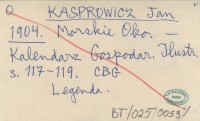 O KASPROWICZ Jan
1904. Morskie Oko. —
Kalendarz Gospodar. Ilustr
s. 117-119. CBG
Legenda.
BT/025T/0053/1.